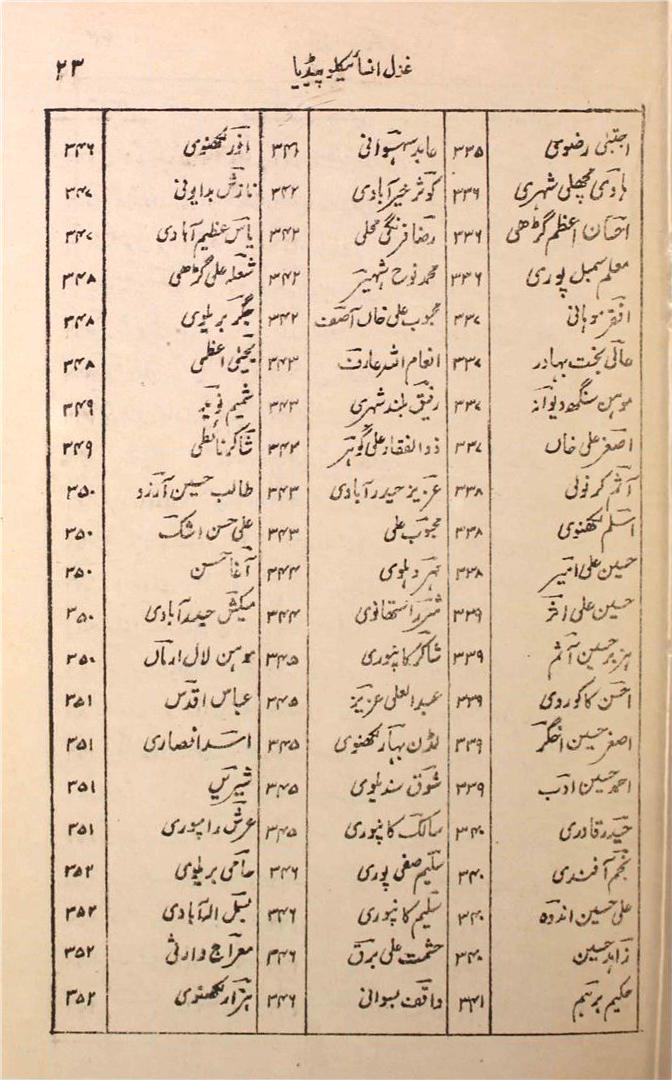 ۲۳ غزل انسائیکلوپیڈیا
اجتبیٰ رضوی ۳۳۵ عابد سہسوانی ۳۴۱ انور لکھنوی ۳۴۶
ہادی مچھلی شہری ۳۳۶ کوثر خیرآبادی ۳۴۲ نازش بدایونی ۳۴۷
احسان اعظم گڑھی ۳۳۶ رضا فرنگی محلی ۳۴۲ یاس عظیم آبادی ۳۴۷
معلم سمبل پوری ۳۳۶ محمد نوح شہیر ۳۴۲ شعلہ علی گڑھی ۳۴۸
افقر موہانی ۳۳۷ محبوب علی خاں آصف ۳۴۲ جگر بریلوی ۳۴۸
عالی بخت بہادر ۳۳۷ انعام اللہ عارف ۳۴۳ یحییٰ اعظمی ۳۴۸
موہن سنگھ دیوانہ ۳۳۷ رفیق بلند شہری ۳۴۳ شمیم نوید ۳۴۹
اصغر علی خاں ۳۳۷ ذوالفقار علی گوہر ۳۴۳ شاکر نائطی ۳۴۹
آثم کرنولی ۳۳۸ عزیز حیدرآبادی ۳۴۳ طالب حسین آرزو ۳۵۰
اسلم لکھنوی ۳۳۸ محبوب علی ۳۴۳ علی حسن اشک ۳۵۰
حسین علی امیر ۳۳۸ مہر دہلوی ۳۴۴ آغا حسن ۳۵۰
حسین علی اثر ۳۳۹ شرر استھانوی ۳۴۴ میکش حیدرآبادی ۳۵۰
ہزبر حسین آثم ۳۳۹ شاکر کانپوری ۳۴۵ موہن لال ارماں ۳۵۰
احسن کاکوروی ۳۳۹ عبدالعلی عزیز ۳۴۵ عباس اقدس ۳۵۱
اصغر حسین اخگر ۳۳۹ لڈن بہار لکھنوی ۳۴۵ اسد انصاری ۳۵۱
احمد حسین ادب ۳۳۹ شوق سندیلوی ۳۴۵ شیریں ۳۵۱
حیدر قادری ۳۴۰ سالک کانپوری ۳۴۵ عرش رامپوری ۳۵۱
نجم آفندی ۳۴۰ سلیم صفی پوری ۳۴۶ حامی بریلوی ۳۵۲
علی حسین اندوہ ۳۴۰ سلیم کانپوری ۳۴۶ بسمل الہ آبادی ۳۵۲
زاہد حسین ۳۴۰ حشمت علی برق ۳۴۶ معراج وارثی ۳۵۲
حکیم برہم ۳۴۱ واقف بسوانی ۳۴۶ ہزار لکھنوی ۳۵۲